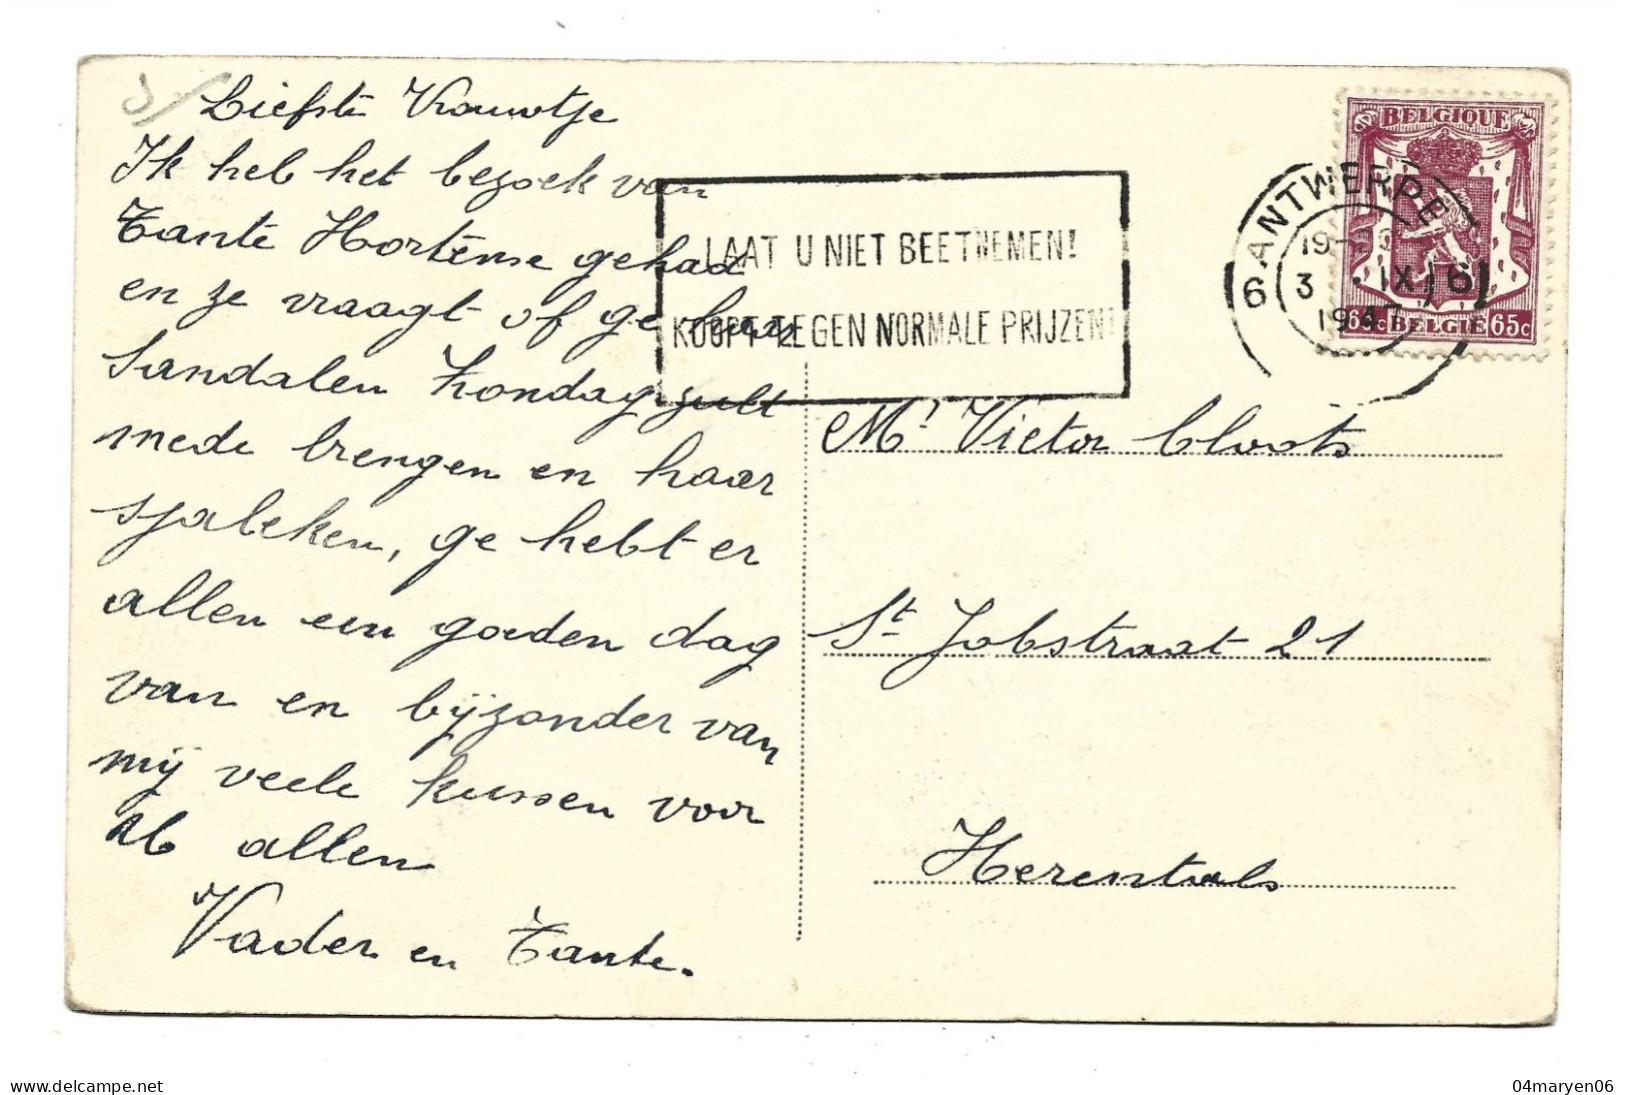 Liefste Vrouwtje
Ik heb het bezoek van
Tante Hortense gehad
en ze vraagt of ge haar
Sandalen Zondag zult
mede brengen en haar
sjaleken, ge hebt er
allen een goeden dag
van en bijzonder van
mij veele kussen voor
U allen
Vader en Tante.
LAAT U NIET BEETNEMEN!
KOOPT TEGEN NORMALE PRIJZEN!
6 ANTWERPE 6
3 IX
BELGIQUE
65c BELGIE 65c
Mr Victor Cloots
St Jobstraat 21
Herentals
04maryen06
delcampe.net